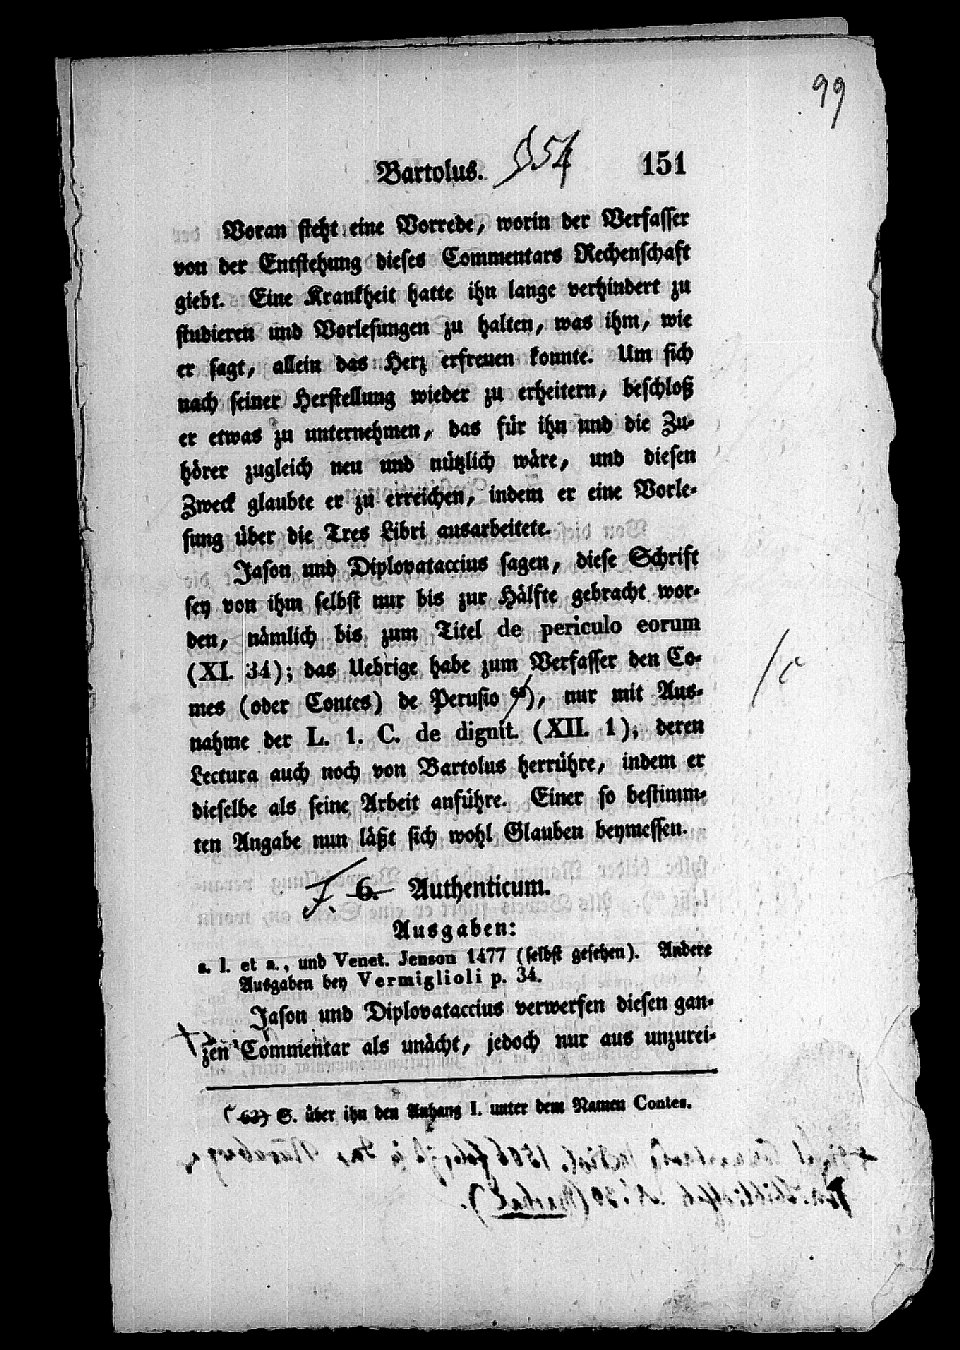 99
Bartolus. 151
Voran steht eine Vorrede, worin der Verfasser
von der Entstehung dieses Commentars Rechenschaft
giebt. Eine Krankheit hatte ihn lange verhindert zu
studieren und Vorlesungen zu halten, was ihm, wie
er sagt, allein das Herz erfreuen konnte. Um sich
nach seiner Herstellung wieder zu erheitern, beschloß
er etwas zu unternehmen, das für ihn und die Zu-
hörer zugleich neu und nützlich wäre, und diesen
Zweck glaubte er zu erreichen, indem er eine Vorle-
sung über die Tres Libri ausarbeitete.
Jason und Diplovataccius sagen, diese Schrift
sey von ihm selbst nur bis zur Hälfte gebracht wor-
den, nämlich bis zum Titel de periculo eorum
(XI. 34); das Uebrige habe zum Verfasser den Co-
mes (oder Contes) de Perusio ), nur mit Aus-
nahme der L. 1. C. de dignit. (XII. 1), deren
Lectura auch noch von Bartolus herrühre, indem er
dieselbe als seine Arbeit anführe. Einer so bestimm-
ten Angabe nun läßt sich wohl Glauben beymessen.
7. 6. Authenticum.
Ausgaben:
s. l. et a., und Venet. Jenson 1477 (selbst gesehen). Andere
Ausgaben bey Vermiglioli p. 34.
Jason und Diplovataccius verwerfen diesen gan-
zen Commentar als unächt, jedoch nur aus unzurei-
63) S. über ihn den Anhang I. unter dem Namen Contes.